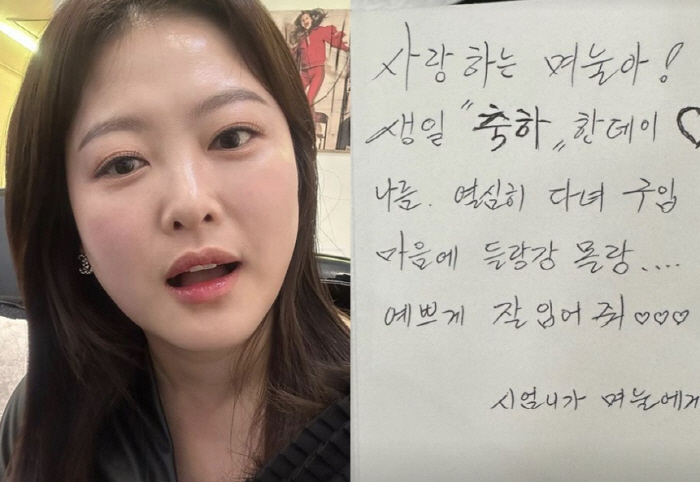 사랑하는 며눌아!
생일 "축하" 한데이 ♡
나름. 열심히 다녀 구입
마음에 들랑강 몰랑....
예쁘게 잘 입어 줘 ♡♡♡
시엄니가 며눌에게